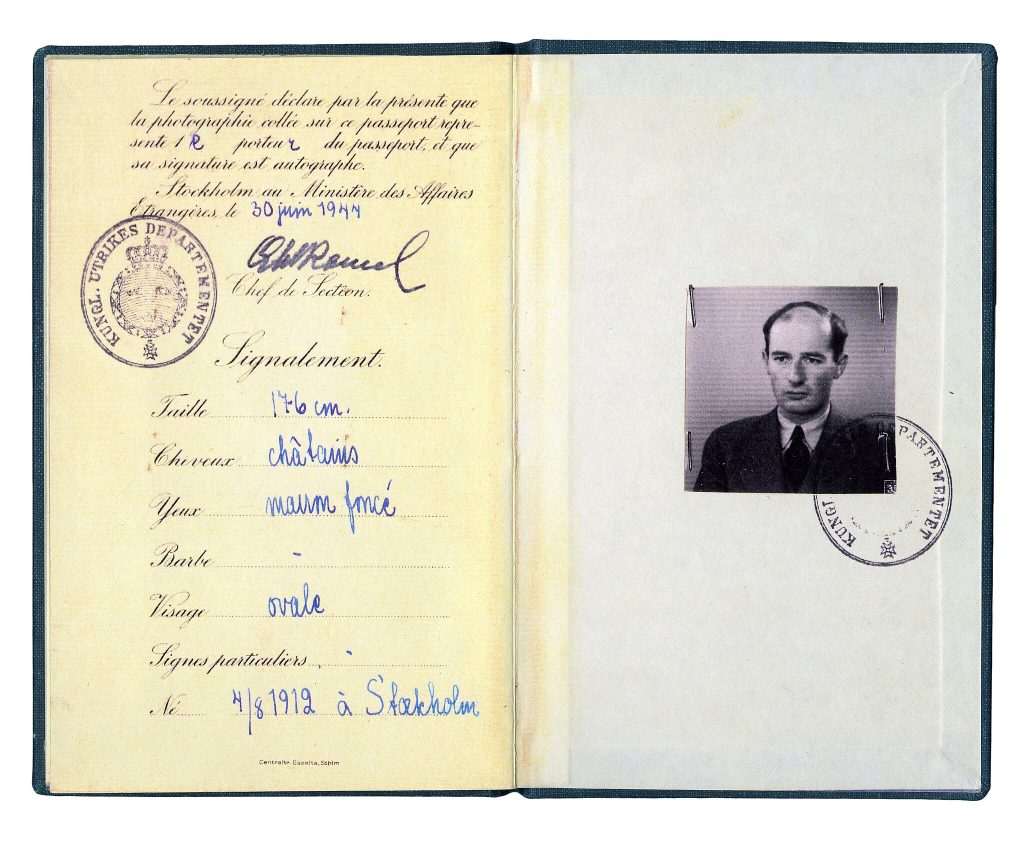 Le soussigné déclare par la présente que
la photographie collée sur ce passeport repré-
sente l e porteur du passeport, et que
sa signature est autographe.
Stockholm au Ministère des Affaires
Etrangères, le 30 juin 1944
KUNGL. UTRIKES DEPARTEMENTET
Chef de Section.
Signalement.
Taille 176 cm.
Cheveux châtains
Yeux marron foncé
Barbe -
Visage ovale
Signes particuliers -
Né 4/8 1912 à Stockholm
Centraltr. Esselte, Sthlm
KUNGL. DEPARTEMENTET